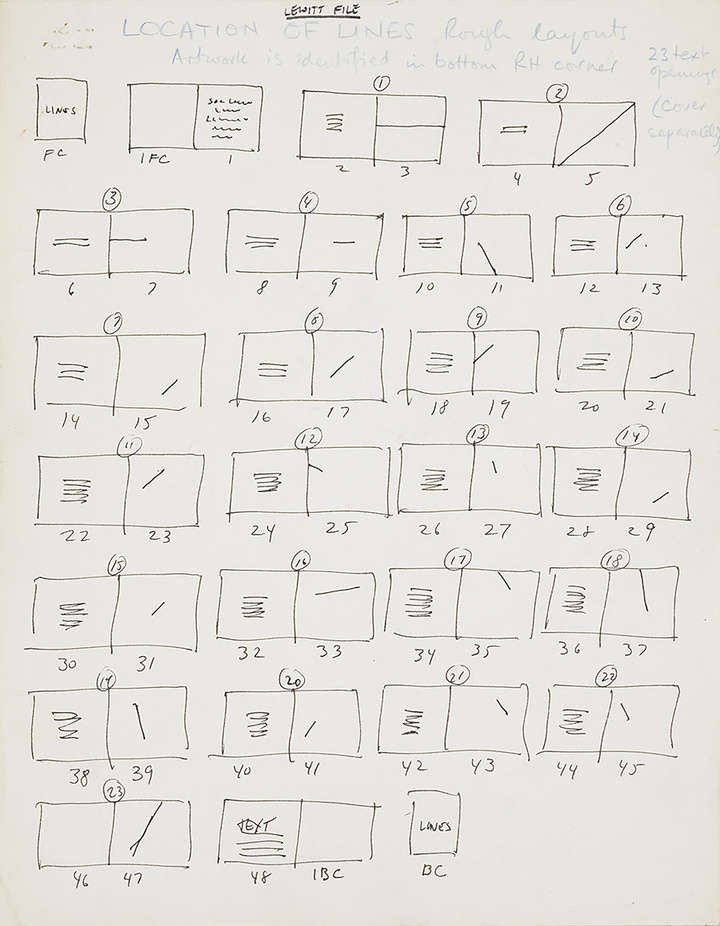 LEWITT FILE
LOCATION OF LINES Rough layouts
Artwork is identified in bottom RH corner
23 text
openings
(Cover
separately)
LINES
FC
IFC 1
1
2 3
2
4 5
3
6 7
4
8 9
5
10 11
6
12 13
7
14 15
8
16 17
9
18 19
10
20 21
11
22 23
12
24 25
13
26 27
14
28 29
15
30 31
16
32 33
17
34 35
18
36 37
19
38 39
20
40 41
21
42 43
22
44 45
23
46 47
TEXT
48 IBC
LINES
BC